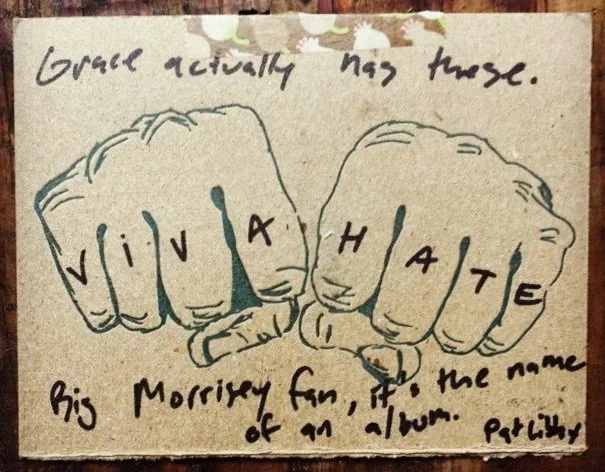 Grace actually has these.
ViVA HATE
Big Morrisey fan, it's the name
of an album.